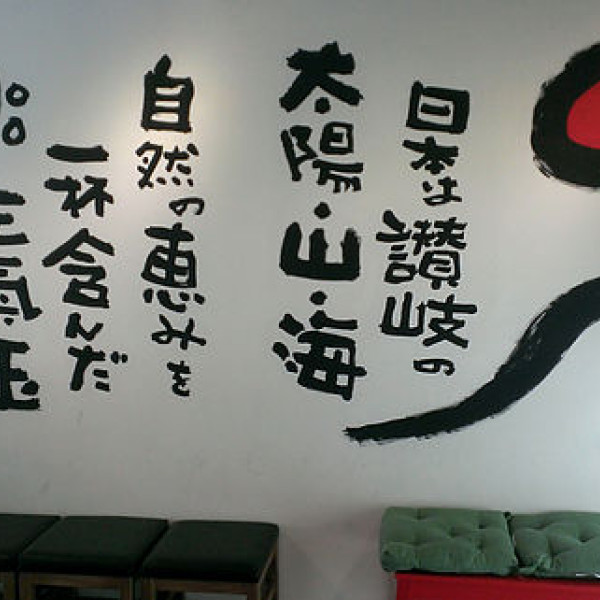 日本は讃岐の
太陽・山・海
自然の恵みを
一杯含んだ